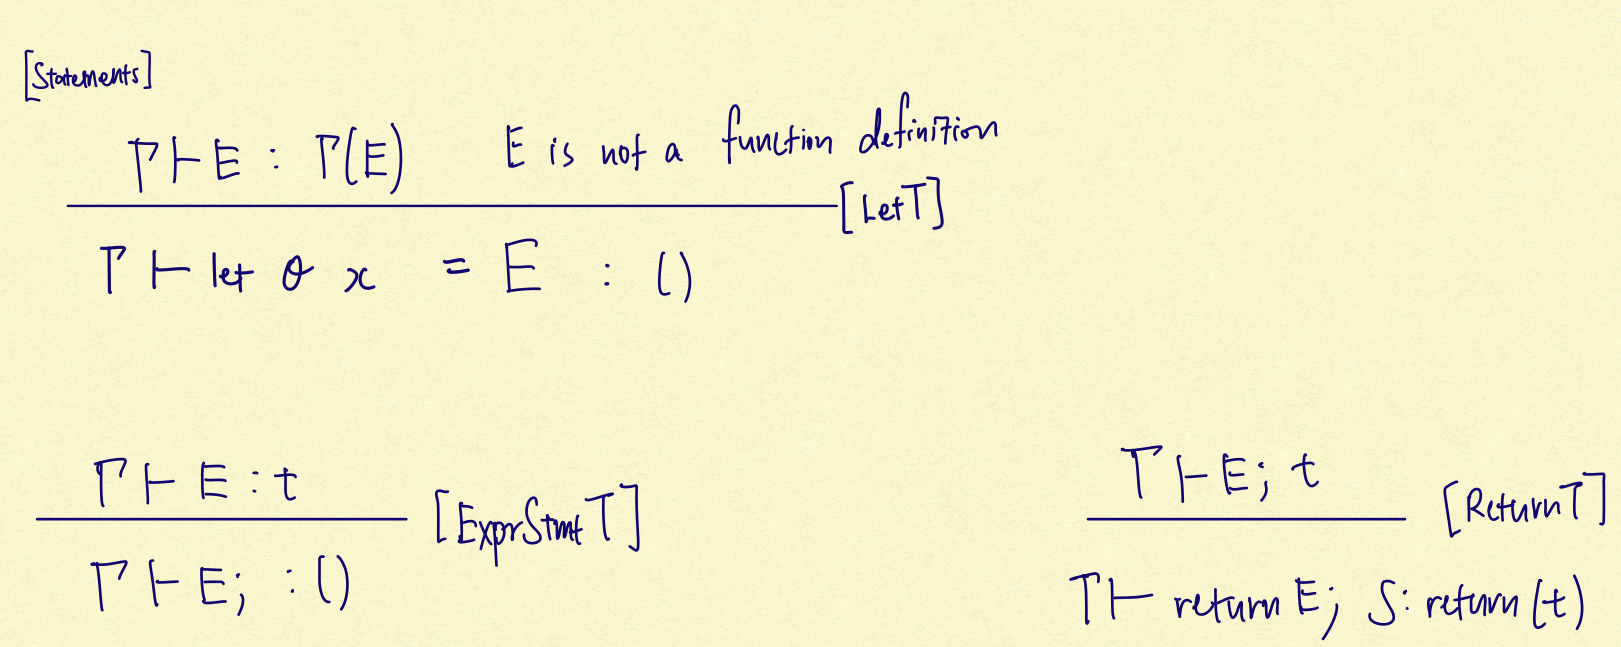 [Statements]
Γ ⊢ E : Γ(E) E is not a function definition
[LetT]
Γ ⊢ let θ x = E : ()
Γ ⊢ E : t
[ExprStmtT]
Γ ⊢ E; : ()
Γ ⊢ E; t
[ReturnT]
Γ ⊢ return E; S : return(t)